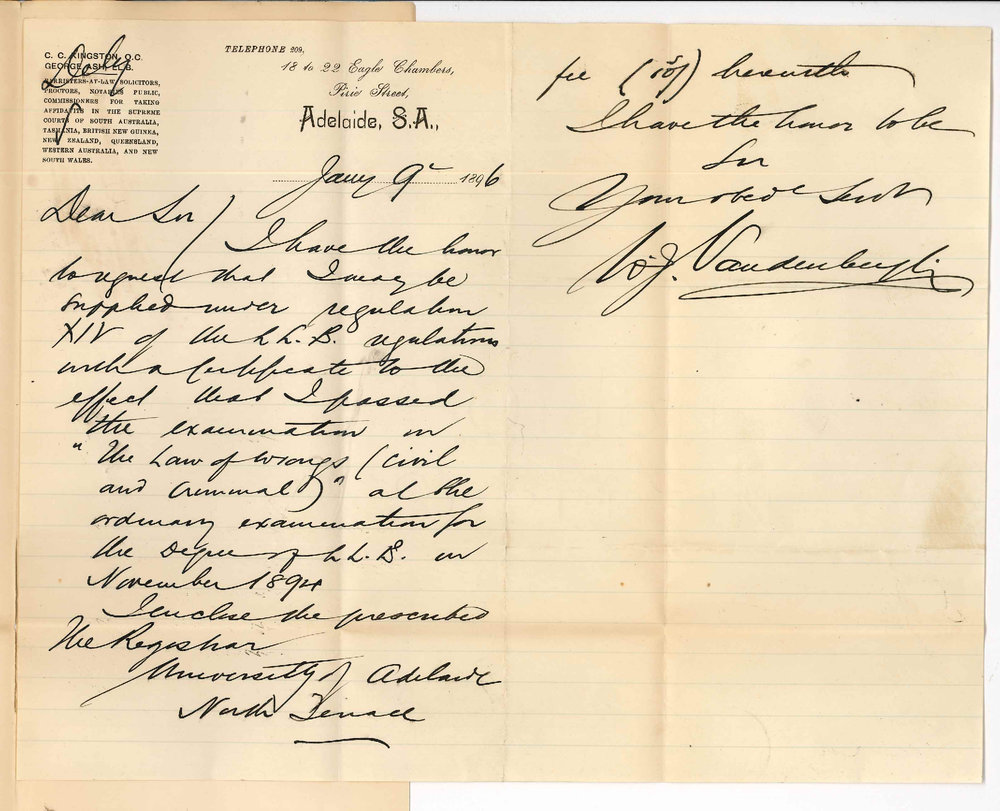 C. C. KINGSTON, Q.C.
GEORGE ASH, LL.B.
BARRISTERS-AT-LAW, SOLICITORS,
PROCTORS, NOTARIES PUBLIC,
COMMISSIONERS FOR TAKING
AFFIDAVITS IN THE SUPREME
COURTS OF SOUTH AUSTRALIA,
TASMANIA, BRITISH NEW GUINEA,
NEW ZEALAND, QUEENSLAND,
WESTERN AUSTRALIA, AND NEW
SOUTH WALES.
TELEPHONE 209,
18 to 22 Eagle Chambers,
Pirie Street,
Adelaide, S.A.,
Jany 9th 1896
Dear Sir/
I have the honor
to request that I may be
supplied under regulation
XIV of the LL.B. regulations
with a Certificate to the
effect that I passed
the examination in
"The Law of Wrongs (civil
and criminal)" at the
ordinary examination for
the Degree of LL.B. in
November 1894
I enclose the prescribed
The Registrar
University of Adelaide
North Terrace
fee (10/) herewith
I have the honor to be
Sir
Your obedt Servt
W.J. Vandenbergh